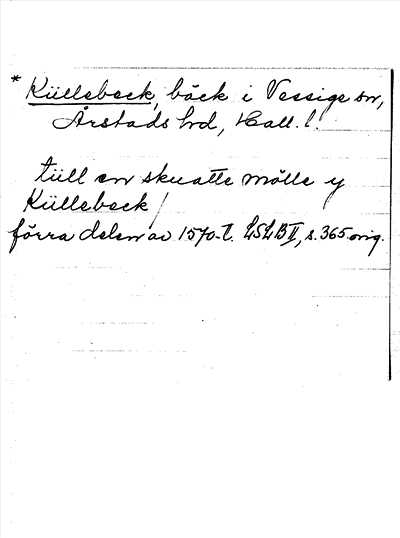 * Küllebeck, bäck i Vessige sn,
Årstads hd, Hall. l.
tüll en skuatte mølle y
Küllebeck /
förra delen av 1570-t. LSLB II, s. 365 orig.